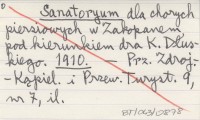 Sanatoryum dla chorych
piersiowych w Zakopanem
pod kierunkiem dra K. Dłus-
kiego. 1910. — Prz. Zdroj.-
-Kąpiel. i Przew. Turyst. 9,
nr 7, il.
BT/063/0278